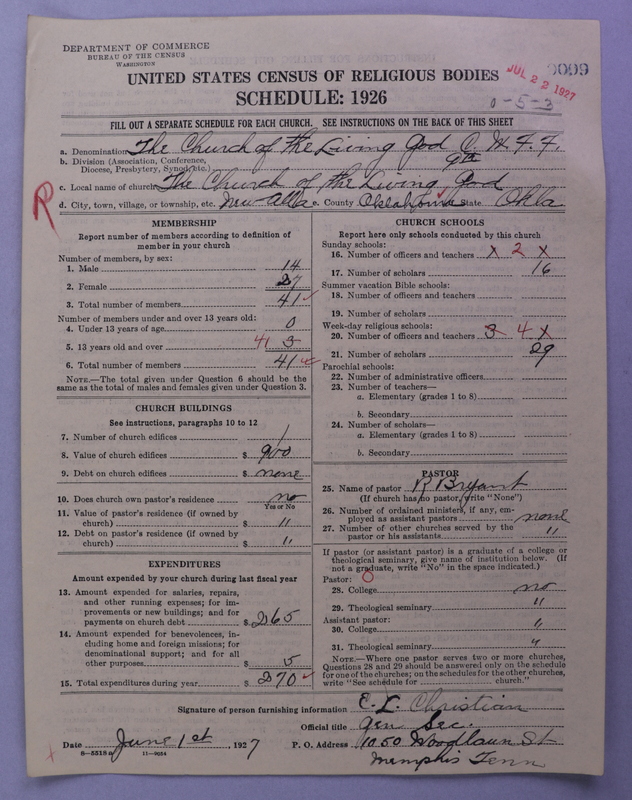 DEPARTMENT OF COMMERCE
BUREAU OF THE CENSUS
WASHINGTON
JUL 22 1927
0099
UNITED STATES CENSUS OF RELIGIOUS BODIES
0-5-3
SCHEDULE: 1926
FILL OUT A SEPARATE SCHEDULE FOR EACH CHURCH. SEE INSTRUCTIONS ON THE BACK OF THIS SHEET
a. Denomination The Church of the Living God C. W. F. F.
b. Division (Association, Conference, Diocese, Presbytery, Synod, etc.) 9th
c. Local name of church The Church of the Living God
d. City, town, village, or township, etc. New-Alla e. County Oklahoma State Okla.
R
MEMBERSHIP
Report number of members according to definition of member in your church
Number of members, by sex:
1. Male 14
2. Female 27
3. Total number of members 41 ✓
Number of members under and over 13 years old:
4. Under 13 years of age 0
5. 13 years old and over 41 3
6. Total number of members 41 ✓
NOTE.—The total given under Question 6 should be the same as the total of males and females given under Question 3.
CHURCH BUILDINGS
See instructions, paragraphs 10 to 12
7. Number of church edifices 1
8. Value of church edifices $ 900
9. Debt on church edifices $ none
10. Does church own pastor's residence no
Yes or No
11. Value of pastor's residence (if owned by church) $ "
12. Debt on pastor's residence (if owned by church) $ "
EXPENDITURES
Amount expended by your church during last fiscal year
13. Amount expended for salaries, repairs, and other running expenses; for improvements or new buildings; and for payments on church debt $ 265
14. Amount expended for benevolences, including home and foreign missions; for denominational support; and for all other purposes $ 5
15. Total expenditures during year $ 270 ✓
CHURCH SCHOOLS
Report here only schools conducted by this church
Sunday schools:
16. Number of officers and teachers x 2 x
17. Number of scholars 16
Summer vacation Bible schools:
18. Number of officers and teachers
19. Number of scholars
Week-day religious schools:
20. Number of officers and teachers 3 4 x
21. Number of scholars 29
Parochial schools:
22. Number of administrative officers
23. Number of teachers—
a. Elementary (grades 1 to 8)
b. Secondary
24. Number of scholars—
a. Elementary (grades 1 to 8)
b. Secondary
PASTOR
25. Name of pastor R Bryant
(If church has no pastor, write "None")
26. Number of ordained ministers, if any, employed as assistant pastors none
27. Number of other churches served by the pastor or his assistants "
If pastor (or assistant pastor) is a graduate of a college or theological seminary, give name of institution below. (If not a graduate, write "No" in the space indicated.)
Pastor:
28. College no
29. Theological seminary "
Assistant pastor:
30. College "
31. Theological seminary "
NOTE.—Where one pastor serves two or more churches, Questions 28 and 29 should be answered only on the schedule for one of the churches; on the schedules for the other churches, write "See schedule for ........ church."
Signature of person furnishing information E. L. Christian
Official title Gen Sec.
Date June 1st, 1927 P. O. Address 1050 Woodlaun St
Memphis Tenn
8—5518 a 11—9054